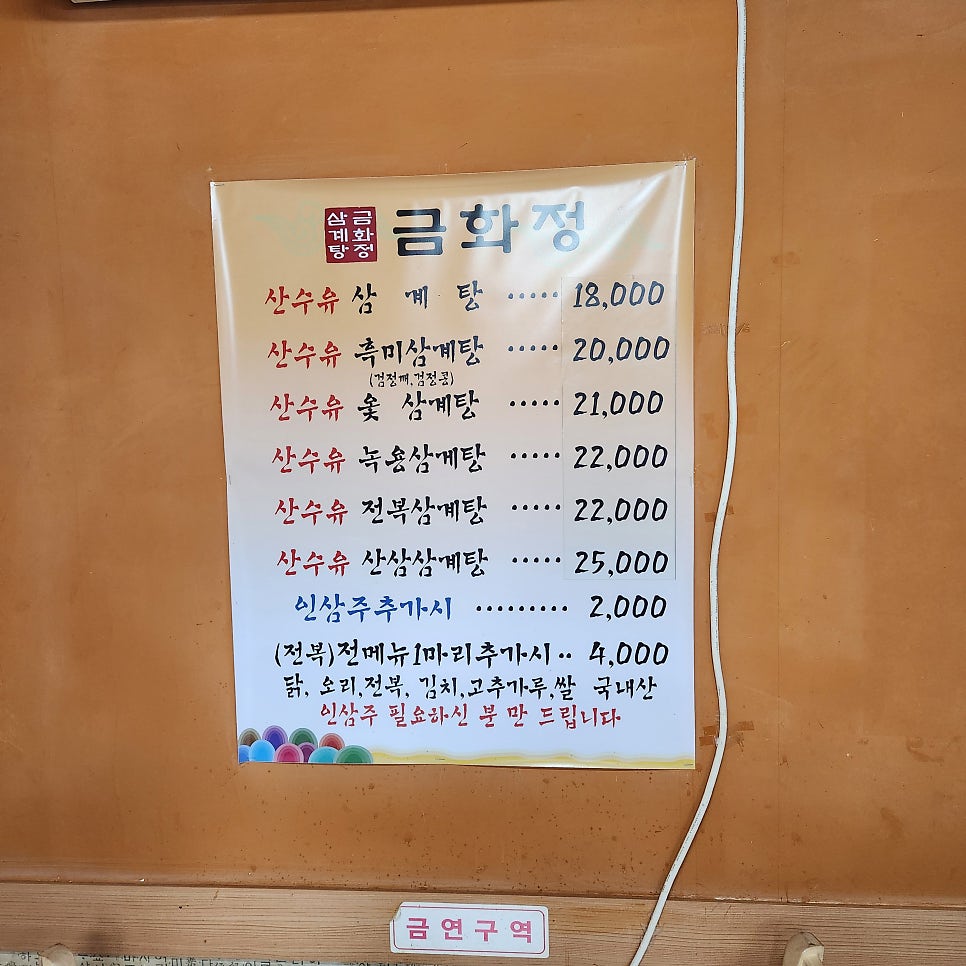 금화정 삼계탕
금화정
산수유 삼 계 탕 ····· 18,000
산수유 흑미삼계탕 ····· 20,000
(검정깨,검정콩)
산수유 옻 삼계탕 ····· 21,000
산수유 녹용삼계탕 ····· 22,000
산수유 전복삼계탕 ····· 22,000
산수유 산삼삼계탕 ····· 25,000
인삼주추가시 ········· 2,000
(전복)전메뉴1마리추가시·· 4,000
닭, 오리,전복, 김치,고추가루,쌀 국내산
인삼주 필요하신 분 만 드립니다
금연구역